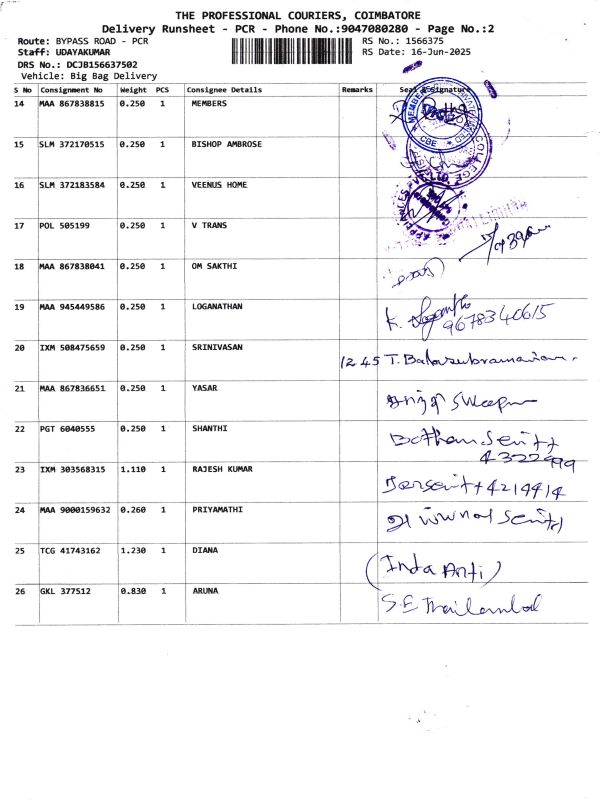 THE PROFESSIONAL COURIERS, COIMBATORE
Delivery Runsheet - PCR - Phone No.:9047080280 - Page No.:2
Route: BYPASS ROAD - PCR
Staff: UDAYAKUMAR
DRS No.: DCJB156637502
Vehicle: Big Bag Delivery
RS No.: 1566375
RS Date: 16-Jun-2025
S No Consignment No Weight PCS Consignee Details Remarks Seal & Signature
14 MAA 867838815 0.250 1 MEMBERS
15 SLM 372170515 0.250 1 BISHOP AMBROSE
16 SLM 372183584 0.250 1 VEENUS HOME
17 POL 505199 0.250 1 V TRANS
18 MAA 867838041 0.250 1 OM SAKTHI
19 MAA 945449586 0.250 1 LOGANATHAN K. 9678340615
20 IXM 508475659 0.250 1 SRINIVASAN 1245 T. Balasubramaniam.
21 MAA 867836651 0.250 1 YASAR
22 PGT 6040555 0.250 1 SHANTHI 4322999
23 IXM 303568315 1.110 1 RAJESH KUMAR 4214914
24 MAA 9000159632 0.260 1 PRIYAMATHI
25 TCG 41743162 1.230 1 DIANA
26 GKL 377512 0.830 1 ARUNA